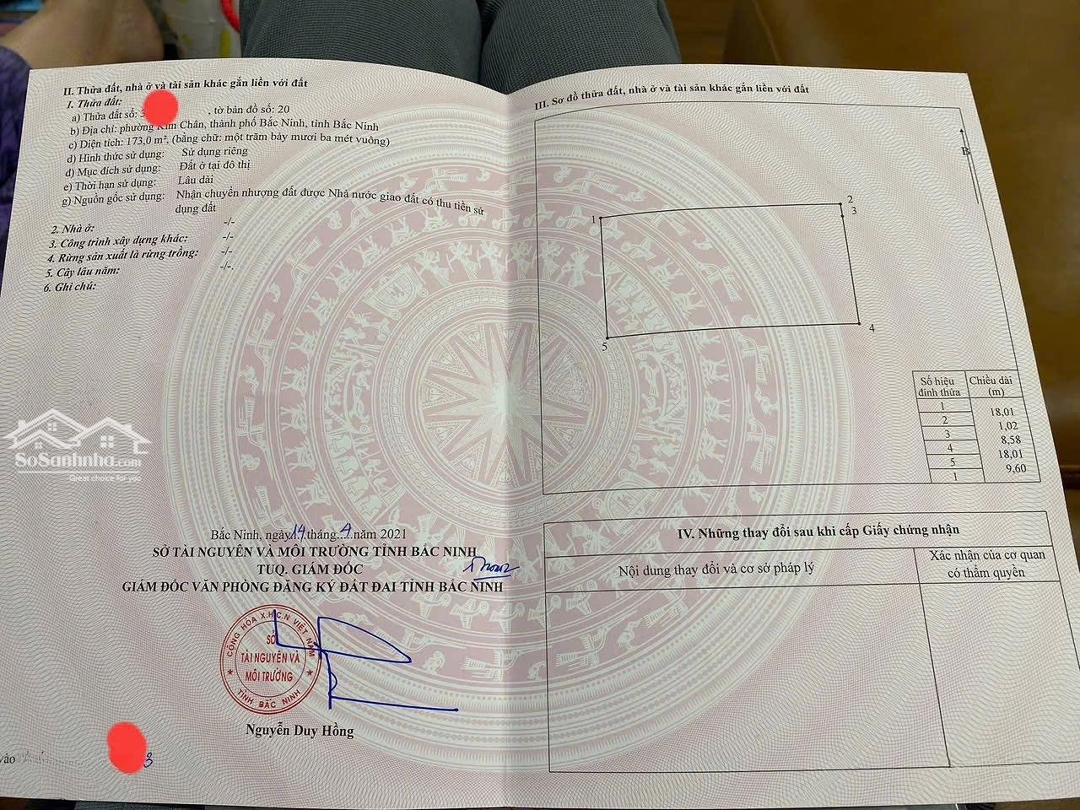 II. Thửa đất, nhà ở và tài sản khác gắn liền với đất
1. Thửa đất:
a) Thửa đất số: 3 , tờ bản đồ số: 20
b) Địa chỉ: phường Kim Chân, thành phố Bắc Ninh, tỉnh Bắc Ninh
c) Diện tích: 173,0 m², (bằng chữ: một trăm bảy mươi ba mét vuông)
d) Hình thức sử dụng: Sử dụng riêng
đ) Mục đích sử dụng: Đất ở tại đô thị
e) Thời hạn sử dụng: Lâu dài
g) Nguồn gốc sử dụng: Nhận chuyển nhượng đất được Nhà nước giao đất có thu tiền sử
dụng đất
2. Nhà ở: -/-
3. Công trình xây dựng khác: -/-
4. Rừng sản xuất là rừng trồng: -/-
5. Cây lâu năm: -/-.
6. Ghi chú:
SoSanhnha.com
Great choice for you
Bắc Ninh, ngày 14 tháng 9 năm 2021
SỞ TÀI NGUYÊN VÀ MÔI TRƯỜNG TỈNH BẮC NINH
TUQ. GIÁM ĐỐC
GIÁM ĐỐC VĂN PHÒNG ĐĂNG KÝ ĐẤT ĐAI TỈNH BẮC NINH
CỘNG HÒA X.H.C.N VIỆT NAM
SỞ
TÀI NGUYÊN VÀ
MÔI TRƯỜNG
TỈNH BẮC NINH
Nguyễn Duy Hồng
vào
3
III. Sơ đồ thửa đất, nhà ở và tài sản khác gắn liền với đất
B
1
2
3
4
5
Số hiệu đỉnh thửa Chiều dài (m)
1
18,01
2
1,02
3
8,58
4
18,01
5
9,60
1
IV. Những thay đổi sau khi cấp Giấy chứng nhận
Nội dung thay đổi và cơ sở pháp lý
Xác nhận của cơ quan
có thẩm quyền